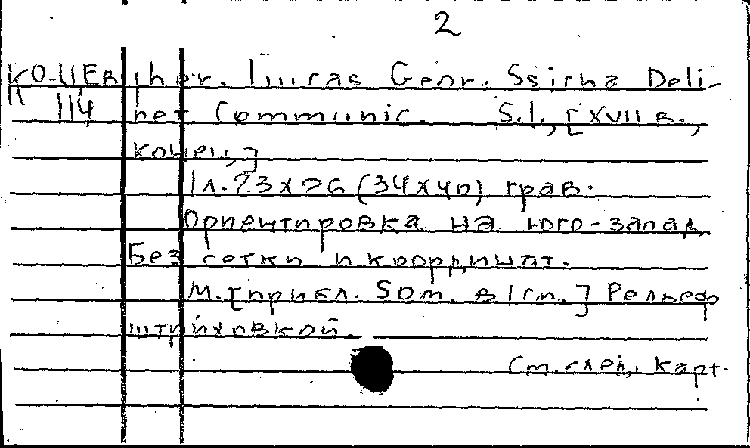 2
КО-11Ев her. Lucas Geor. Ssicha Deli-
К 114 net Communic. S.l., [XVII в.,
конец,]
1л. 23х26 (34х40) грав.
Ориентировка на юго-запад
Без сетки и координат.
М. [прибл. 50m. в 1см.] Рельеф
штриховкой.
См. след. карт.